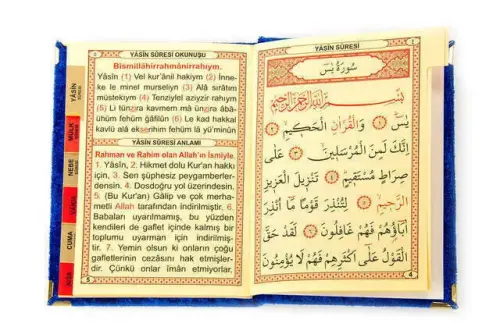 YÂSİN SÛRESİ OKUNUŞU
Bismillâhirrahmânirrahıym.
Yâsîn (1) Vel kur'ânil hakiym (2) İnne-
ke le minel murseliyn (3) Alâ sırâtım
müstekıym (4) Tenziylel aziyzir rahıym
(5) Li tünzira kavmem mâ ünzira âbâ-
ühüm fehüm ğâfilûn (6) Le kad hakkal
kavlü alâ ekserihim fehüm lâ yü'minûn
YÂSİN SÛRESİ ANLAMI
Rahman ve Rahim olan Allah'ın İsmiyle.
1. Yâsîn, 2. Hikmet dolu Kur'an hakkı
için, 3. Sen şüphesiz peygamberler-
densin. 4. Dosdoğru yol üzerindesin.
5. (Bu Kur'an) Gâlip ve çok merha-
metli Allah tarafından indirilmiştir. 6.
Babaları uyarılmamış, bu yüzden
kendileri de gaflet içinde kalmış bir
toplumu uyarman için indirilmiş-
tir. 7. Yemin olsun ki onların çoğu
gafletlerinin cezasını hak etmişler-
dir. Çünkü onlar îmân etmiyorlar.
5
YÂSİN
MÜLK
NEBE
CUMA
YÂSİN SÛRESİ
سُورَةُ يٰسۤ
بِسْمِ اللّٰهِ الرَّحْمٰنِ الرَّحِيمِ
يٰسۤ ﴿١﴾ وَالْقُرْاٰنِ الْحَكِيمِ ﴿٢﴾
اِنَّكَ لَمِنَ الْمُرْسَلِينَ ﴿٣﴾ عَلٰى
صِرَاطٍ مُسْتَقِيمٍ ﴿٤﴾ تَنْزِيلَ الْعَزِيزِ
الرَّحِيمِ ﴿٥﴾ لِتُنْذِرَ قَوْمًا مَٓا اُنْذِرَ
اٰبَٓاؤُهُمْ فَهُمْ غَافِلُونَ ﴿٦﴾ لَقَدْ حَقَّ
الْقَوْلُ عَلٰٓى اَكْثَرِهِمْ فَهُمْ لَا يُؤْمِنُونَ
4